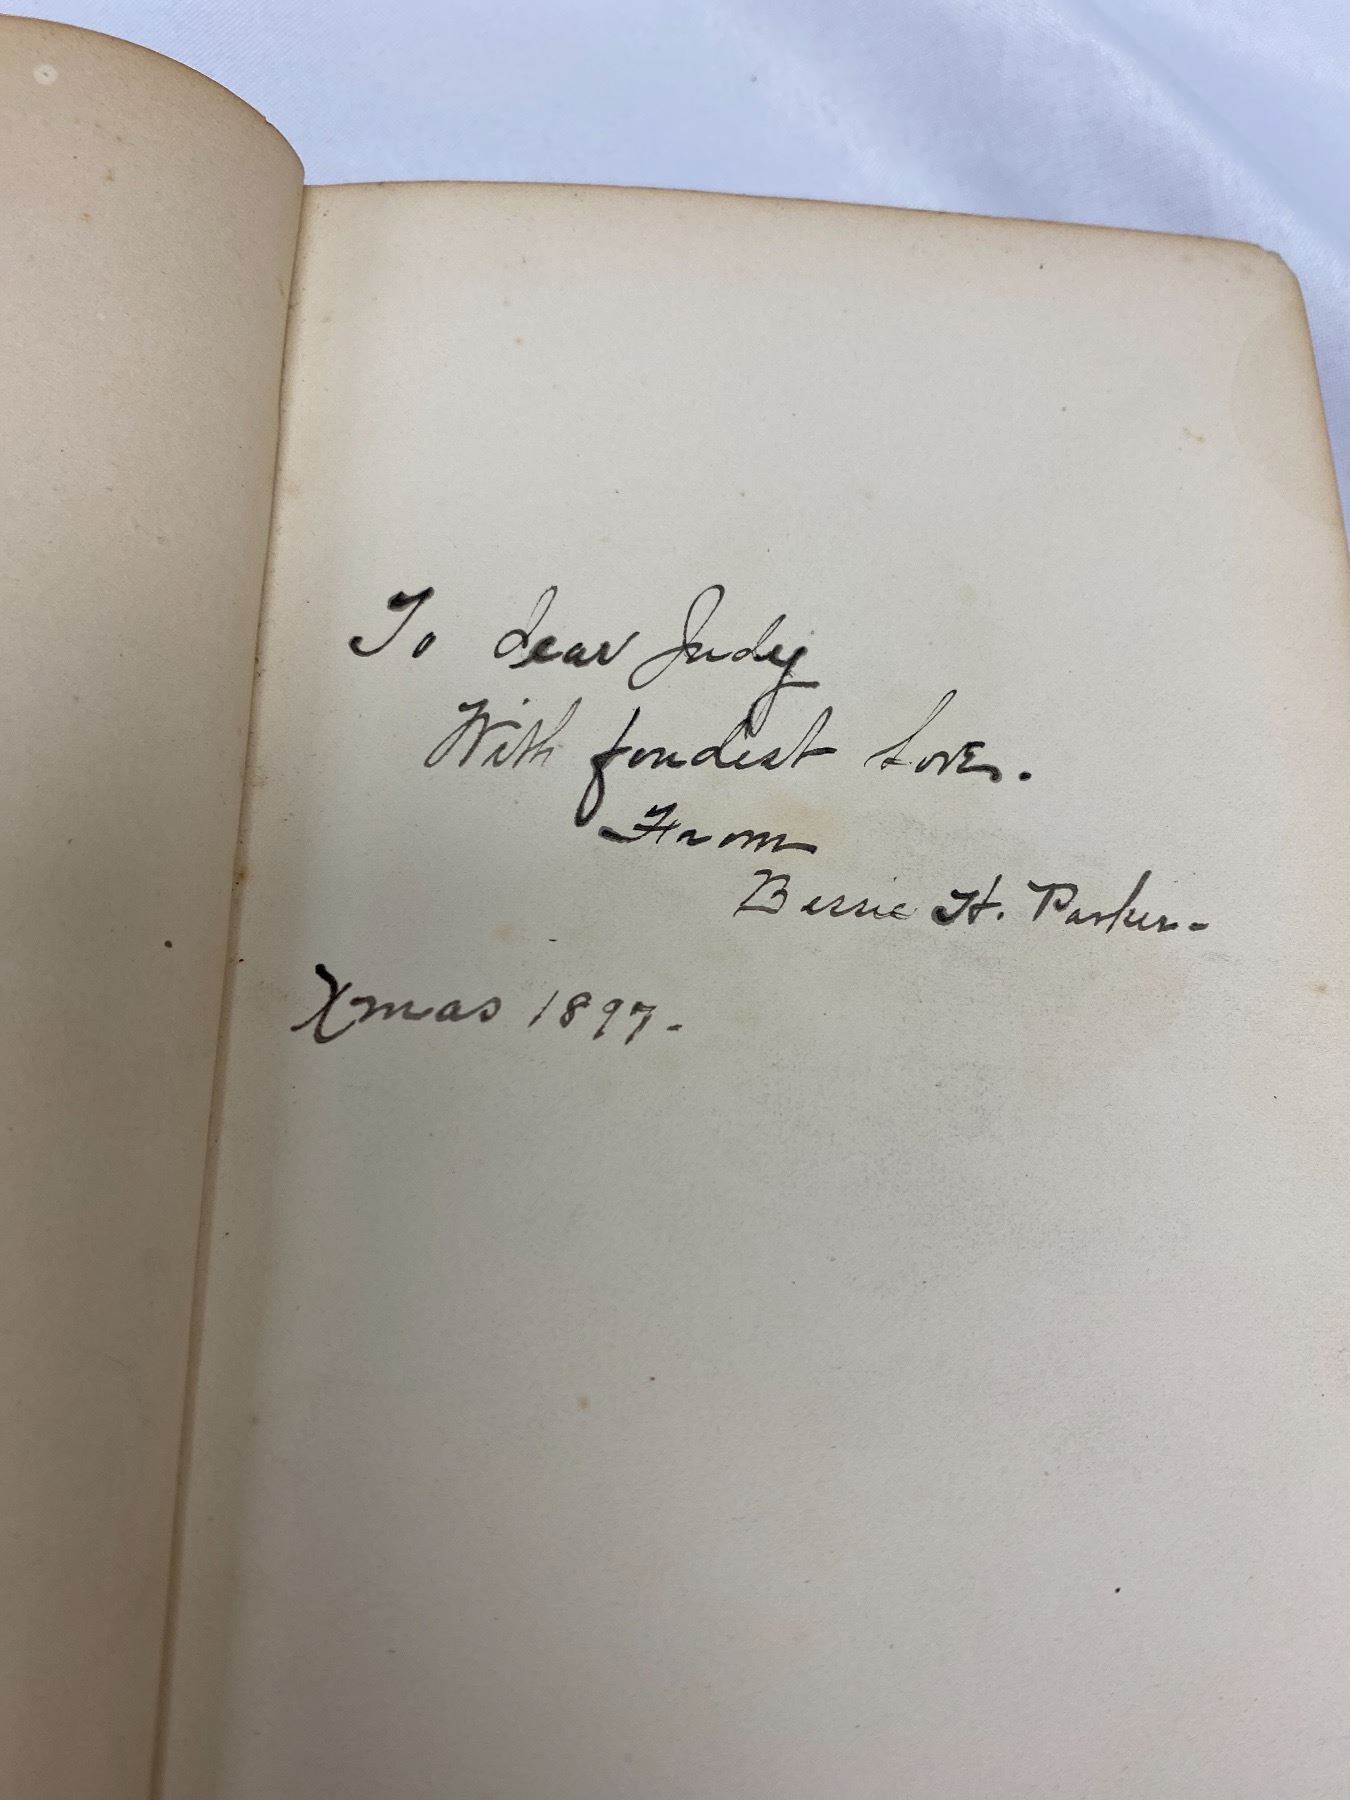 To dear Judy
With fondest love.
From
Bessie H. Parker-
Xmas 1897-